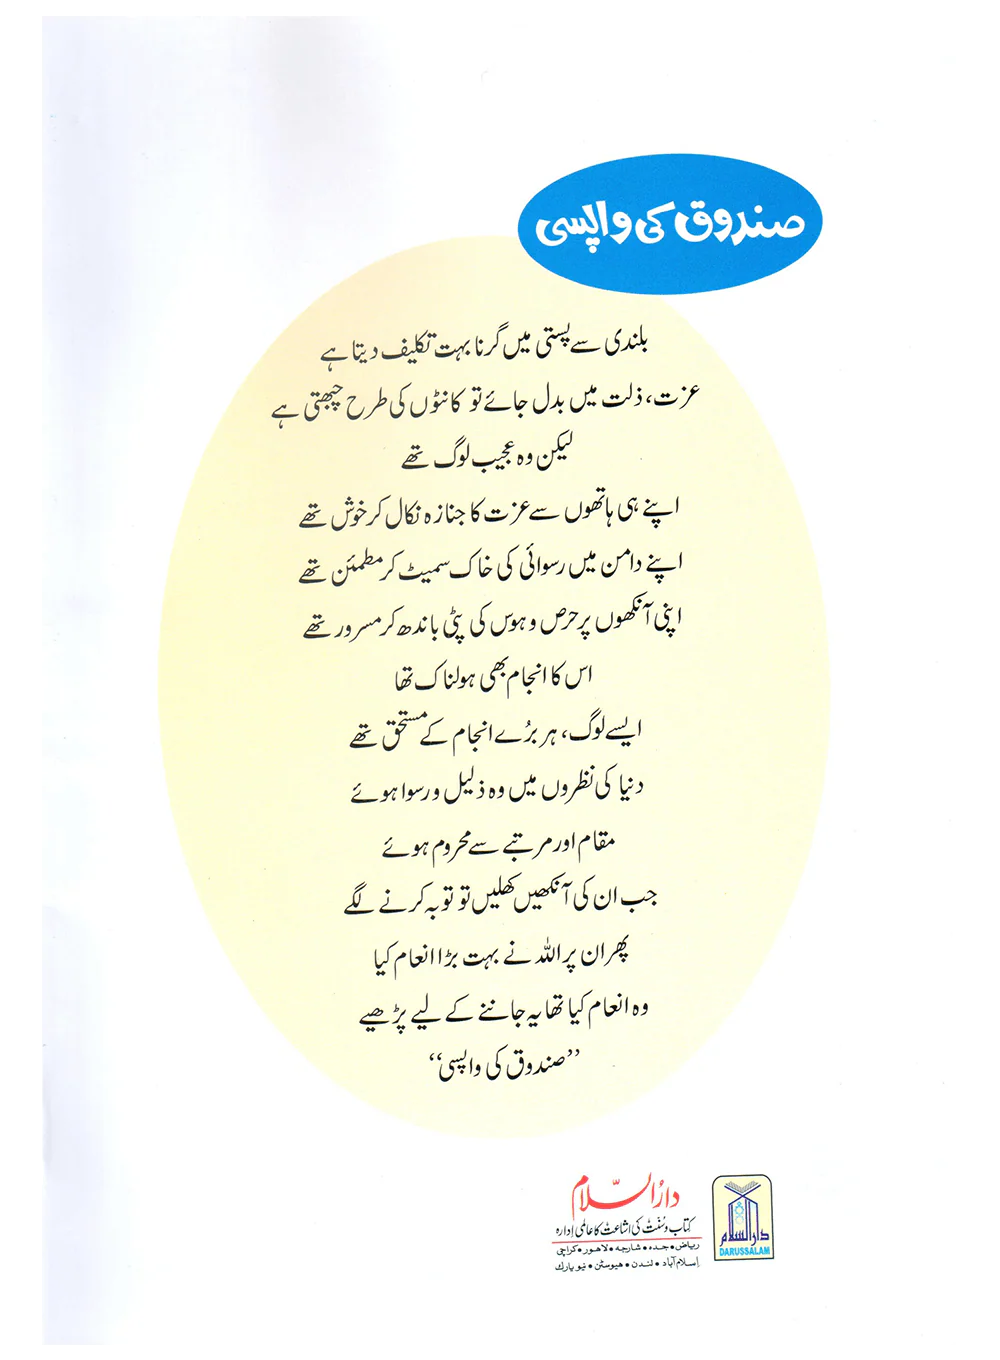 صندوق کی واپسی
بلندی سے پستی میں گرنا بہت تکلیف دیتا ہے
عزت، ذلت میں بدل جائے تو کانٹوں کی طرح چبھتی ہے
لیکن وہ عجیب لوگ تھے
اپنے ہی ہاتھوں سے عزت کا جنازہ نکال کر خوش تھے
اپنے دامن میں رسوائی کی خاک سمیٹ کر مطمئن تھے
اپنی آنکھوں پر حرص و ہوس کی پٹی باندھ کر مسرور تھے
اس کا انجام بھی ہولناک تھا
ایسے لوگ، ہر بُرے انجام کے مستحق تھے
دنیا کی نظروں میں وہ ذلیل و رسوا ہوئے
مقام اور مرتبے سے محروم ہوئے
جب ان کی آنکھیں کھلیں تو توبہ کرنے لگے
پھر ان پر اللہ نے بہت بڑا انعام کیا
وہ انعام کیا تھا یہ جاننے کے لیے پڑھیے
”صندوق کی واپسی“
دارُالسّلام
کتاب و سُنّت کی اشاعت کا عالمی اِدارہ
ریاض • جدہ • شارجہ • لاھور • کراچی
اِسلام آباد • لندن • ھیوسٹن • نیو یارک
دارالسلام
DARUSSALAM